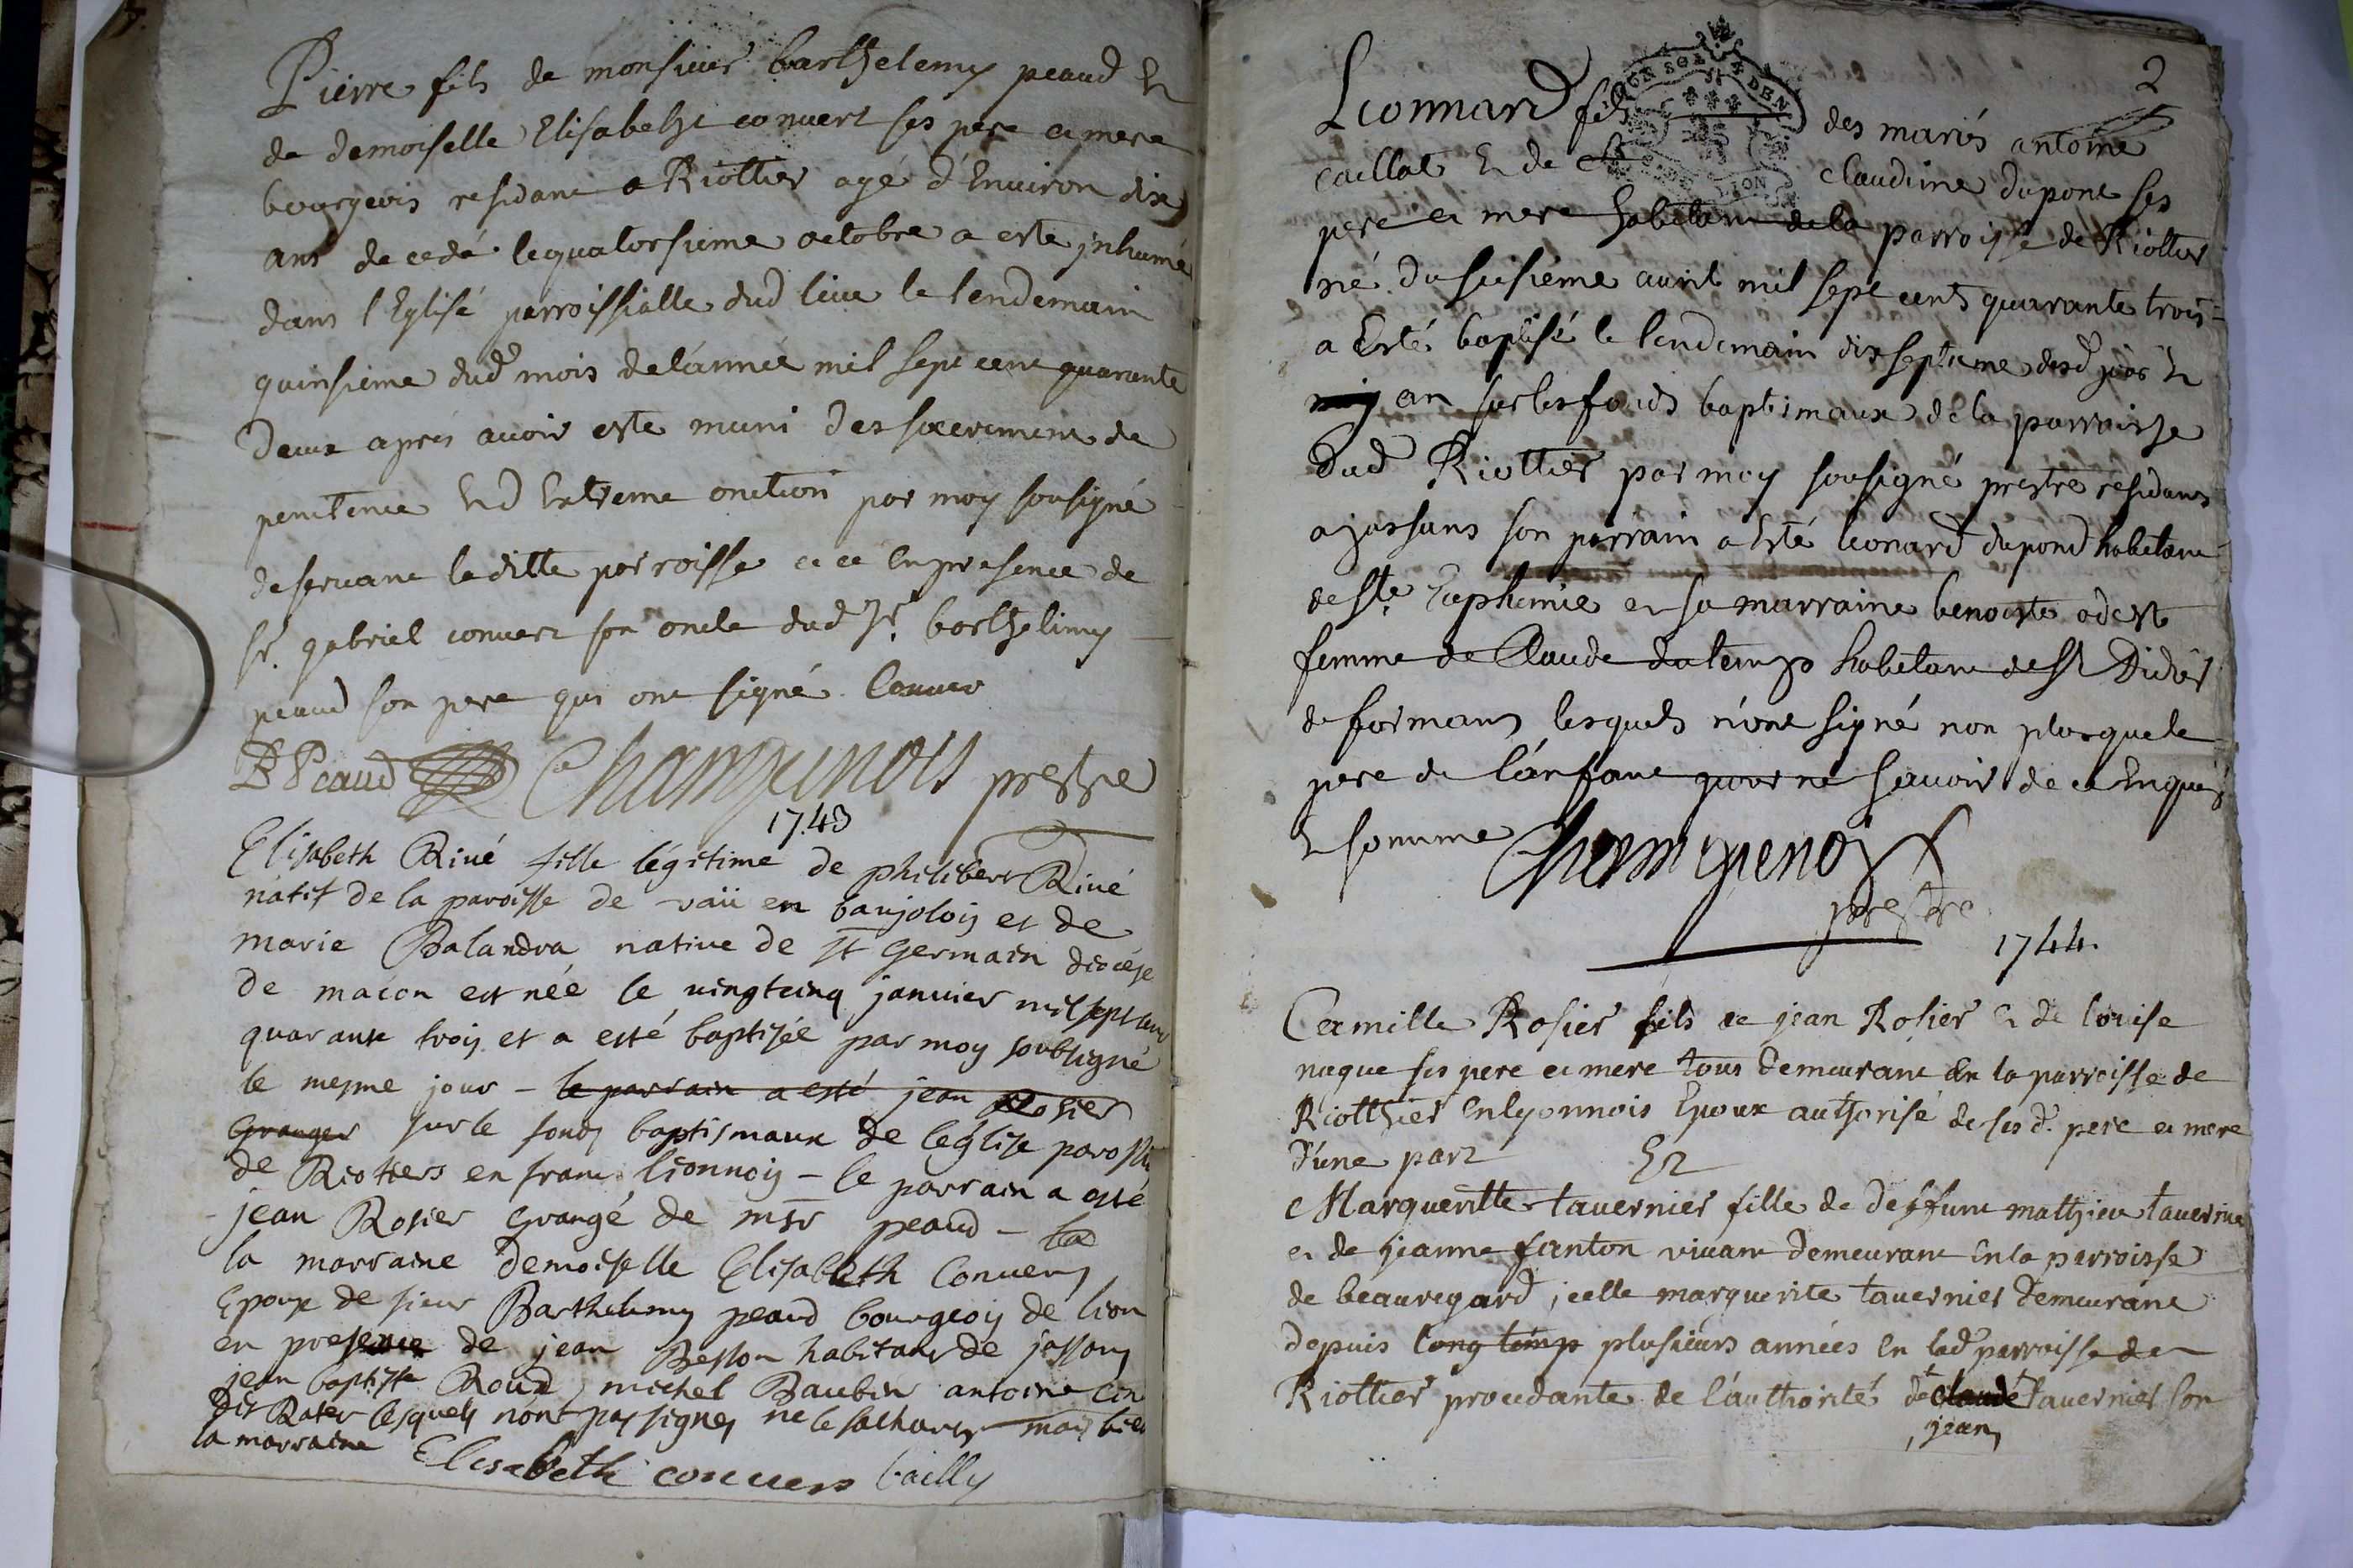 Pierre fils de monsieur barthelemy peaud Et
de demoiselle Elisabeht convert ses pere et mere
bourgeois residant a Riottier agé d'Environ dix
ans decedé le quatorsieme octobre a este jnhumé
dans l'Eglise parroissialle dud lieu le lendemain
quinsieme dud mois de l'année mil sept cent quarante
deux aprés avoir este muni des sacrement de
penitence Et d'Extreme onction par moy sousigné
deservant laditte parroisse et ce En presence de
sr. gabriel convert son oncle dud Sr. barthelimy
peaud son pere qui ont signé Conver
B Peaud Champenois prestre
1743
Elisabeth Rivé fille légitime de philibert Rivé
natif de la paroisse de vaü en baujolois et de
marie Balandra native de St Germain diocèse
de macon est née le vingtcinq janvier mil sept cent
quarante trois et a esté baptisée par moy soubsigné
le mesme jour – le parrain a esté jean Rosier
Granger sur le fonds baptismaux de leglise paross
de Riottiers en franc lionnois – le parrain a esté
jean Rosier Grangé de msr peaud – la
la marraine demoiselle Elisabeth Convers
Epouse de sieur Barthelemy peaud bourgeois de lion
en presence de jean Besson habitant de jassans
jean baptiste Roux michel Baubin antoine
lesquels n'ont pas signés ne le sachants mais bien
la marraine Elisabeth convers bailly
2
Lionnard fils des mariés antoine
caillat Et de Cl claudine dupont ses
pere et mere habitant de la parroisse de Riottier
né du seisieme avril mil sept cents quarante trois
a Esté baptisé le lendemain dix septieme desd jour Et
an sur les fonds baptismaux de la parroisse
dud Riottier par moy sousigné prestre residant
a jassans son parrain a Esté leonard dupond habitant
de Ste. Euphemie et sa marraine benoiste odest
femme de Claude dutemps habitant de St Didier
de formans lesquels n'ont signé non plus que le
pere de l'anfant pour ne scavoir de ce Enquis
Et somme Champenois
prestre
1744.
Camille Rosier fils de jean Rosier Et de louise
nuque ses pere et mere tous demeurant En la parroisse de
Riotthier En lyonnois Epoux authorisé de ses d. pere et mere
d'une part Et
Margueritte tavernier fille de deffunt mathieu tavernier
et de jeanne fanton vivant demeurant En la parroisse
de beauregard, icelle marguerite tavernier demeurant
depuis long temp plusieurs années En lad parroisse de
Riottier procedante de l'authorité de claude tavernier son
jean